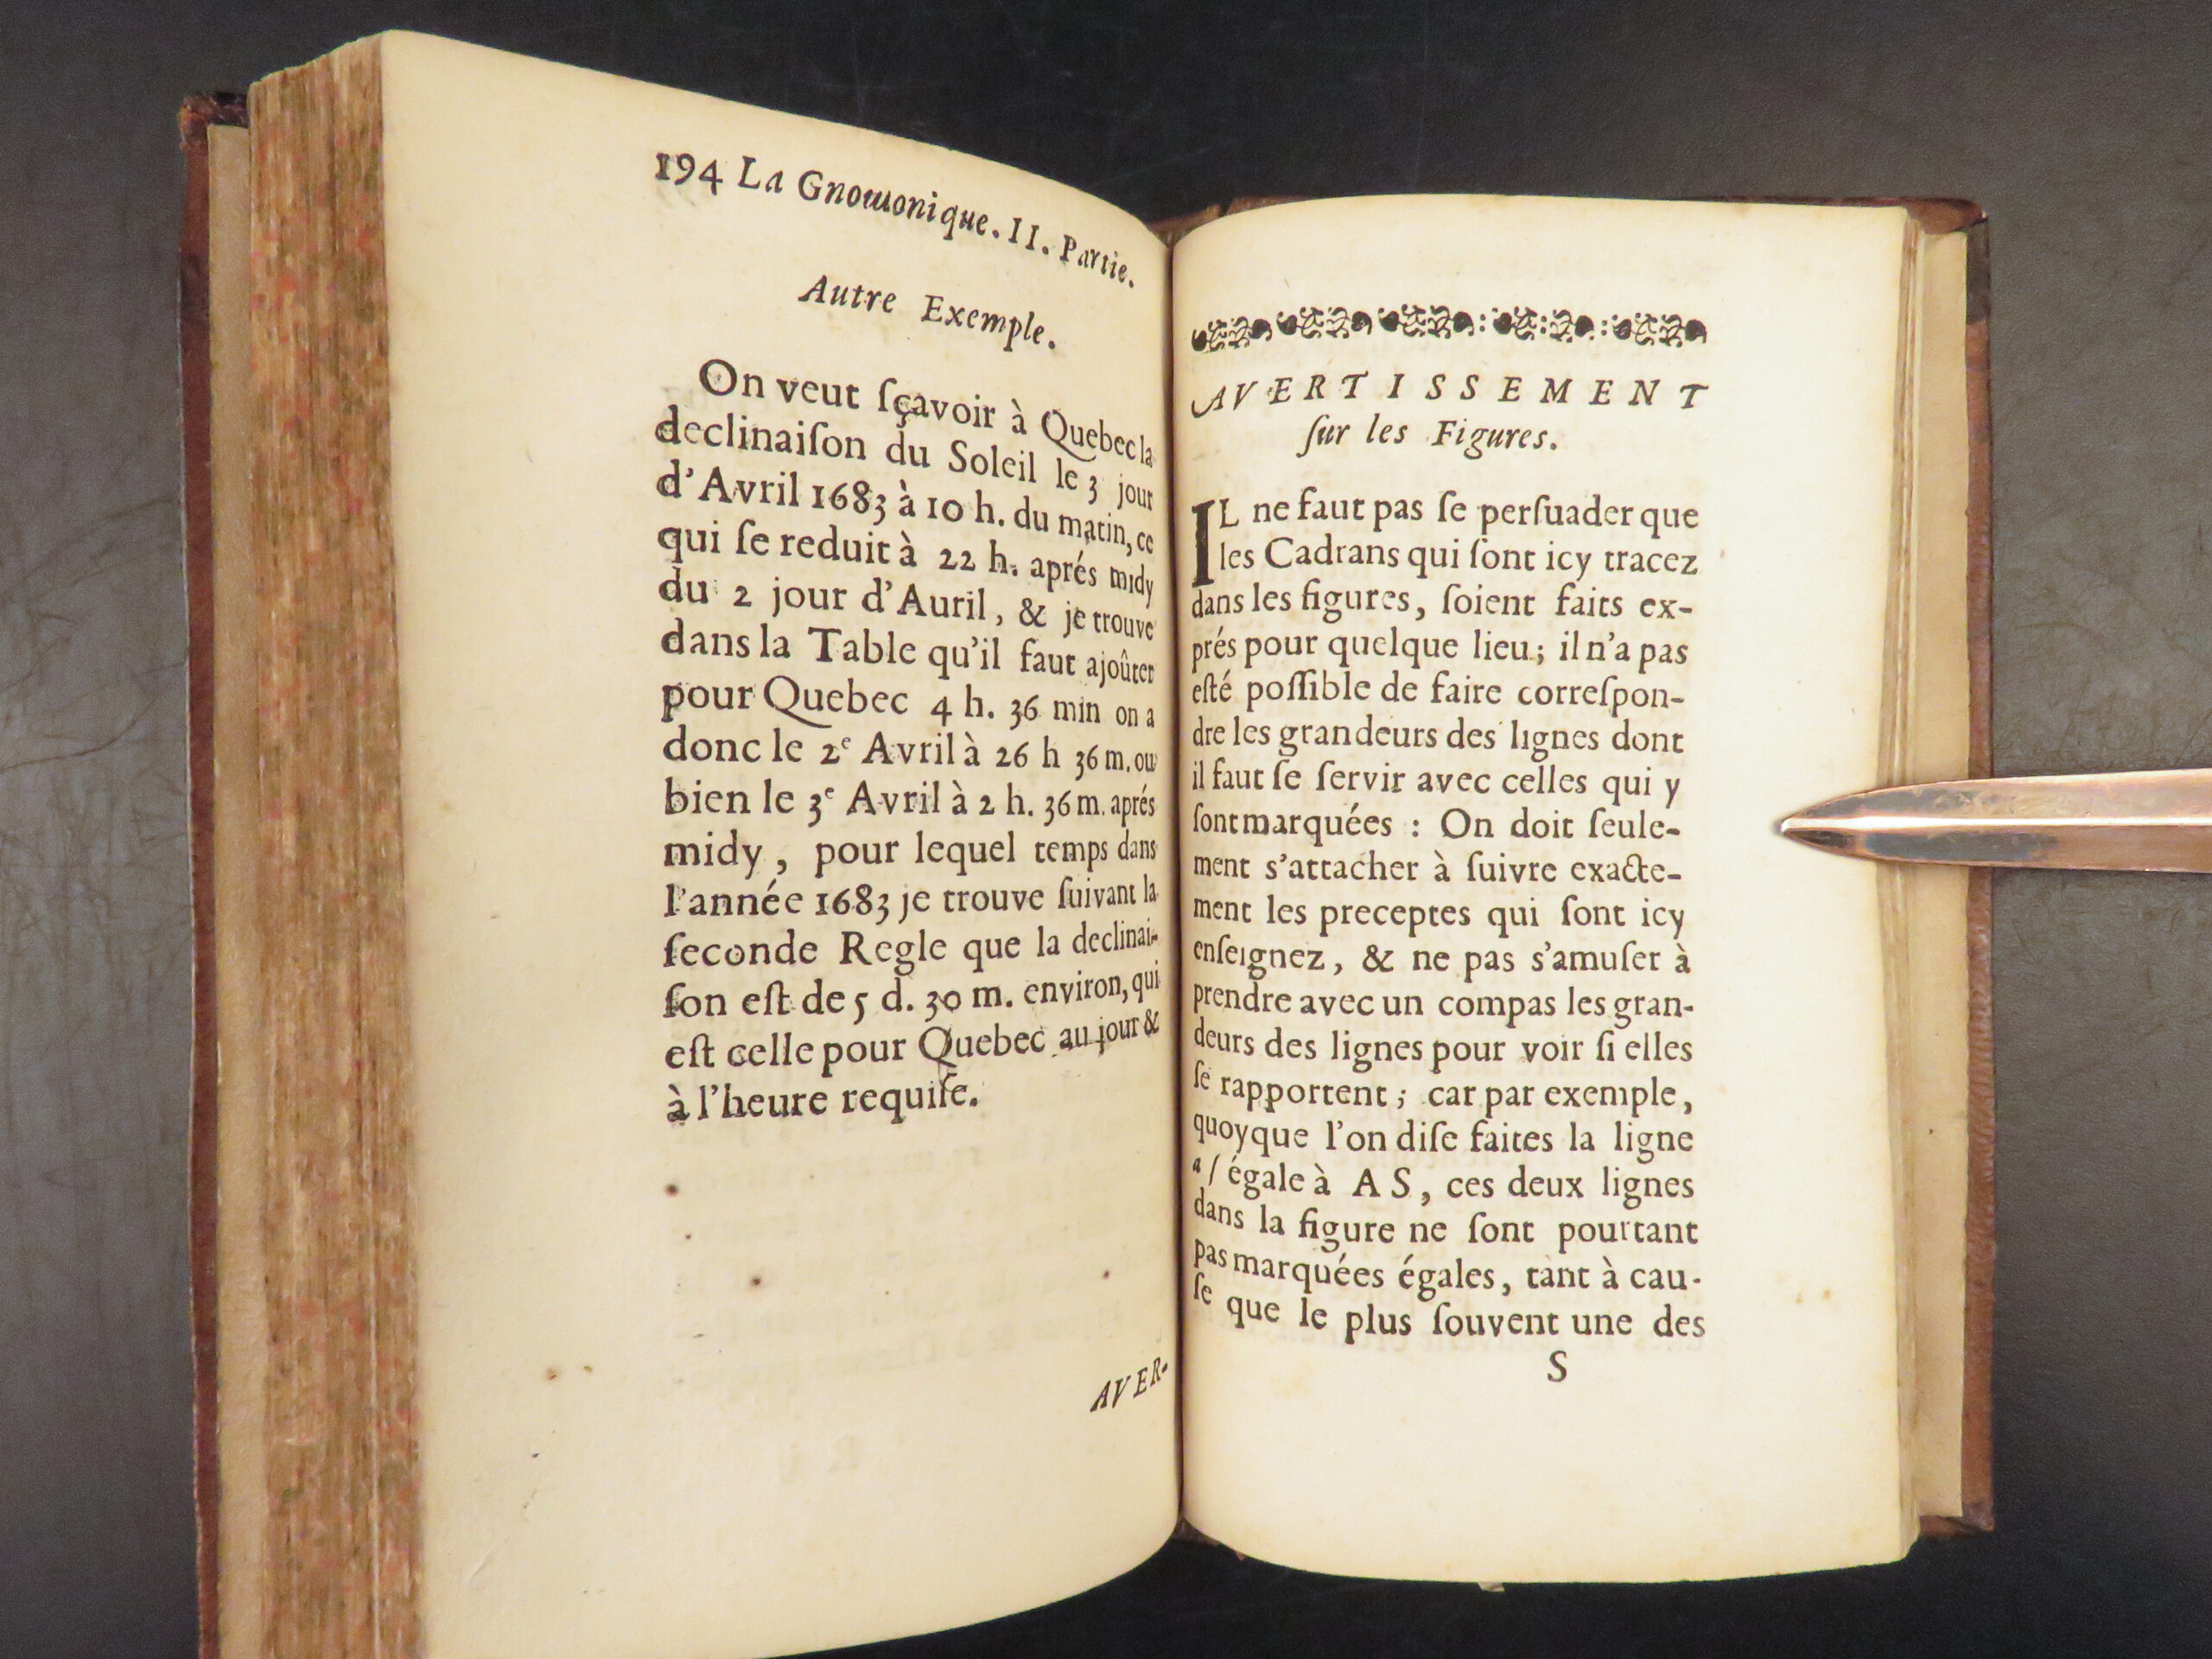 194 La Gnomonique. II. Partie.
Autre Exemple.
On veut ſçavoir à Quebec la
declinaiſon du Soleil le 3 jour
d'Avril 1683 à 10 h. du matin, ce
qui ſe reduit à 22 h. aprés midy
du 2 jour d'Auril, & je trouve
dans la Table qu'il faut ajoûter
pour Quebec 4 h. 36 min on a
donc le 2e Avril à 26 h 36 m. ou
bien le 3e Avril à 2 h. 36 m. aprés
midy, pour lequel temps dans
l'année 1683 je trouve ſuivant la
ſeconde Regle que la declinai-
ſon eſt de 5 d. 30 m. environ, qui
eſt celle pour Quebec au jour &
à l'heure requiſe.
AVER-
AVERTISSEMENT
ſur les Figures.
IL ne faut pas ſe perſuader que
les Cadrans qui ſont icy tracez
dans les figures, ſoient faits ex-
prés pour quelque lieu; il n'a pas
eſté poſſible de faire correſpon-
dre les grandeurs des lignes dont
il faut ſe ſervir avec celles qui y
ſont marquées : On doit ſeule-
ment s'attacher à ſuivre exacte-
ment les preceptes qui ſont icy
enſeignez, & ne pas s'amuſer à
prendre avec un compas les gran-
deurs des lignes pour voir ſi elles
ſe rapportent; car par exemple,
quoyque l'on diſe faites la ligne
a ſ égale à A S, ces deux lignes
dans la figure ne ſont pourtant
pas marquées égales, tant à cau-
ſe que le plus ſouvent une des
S